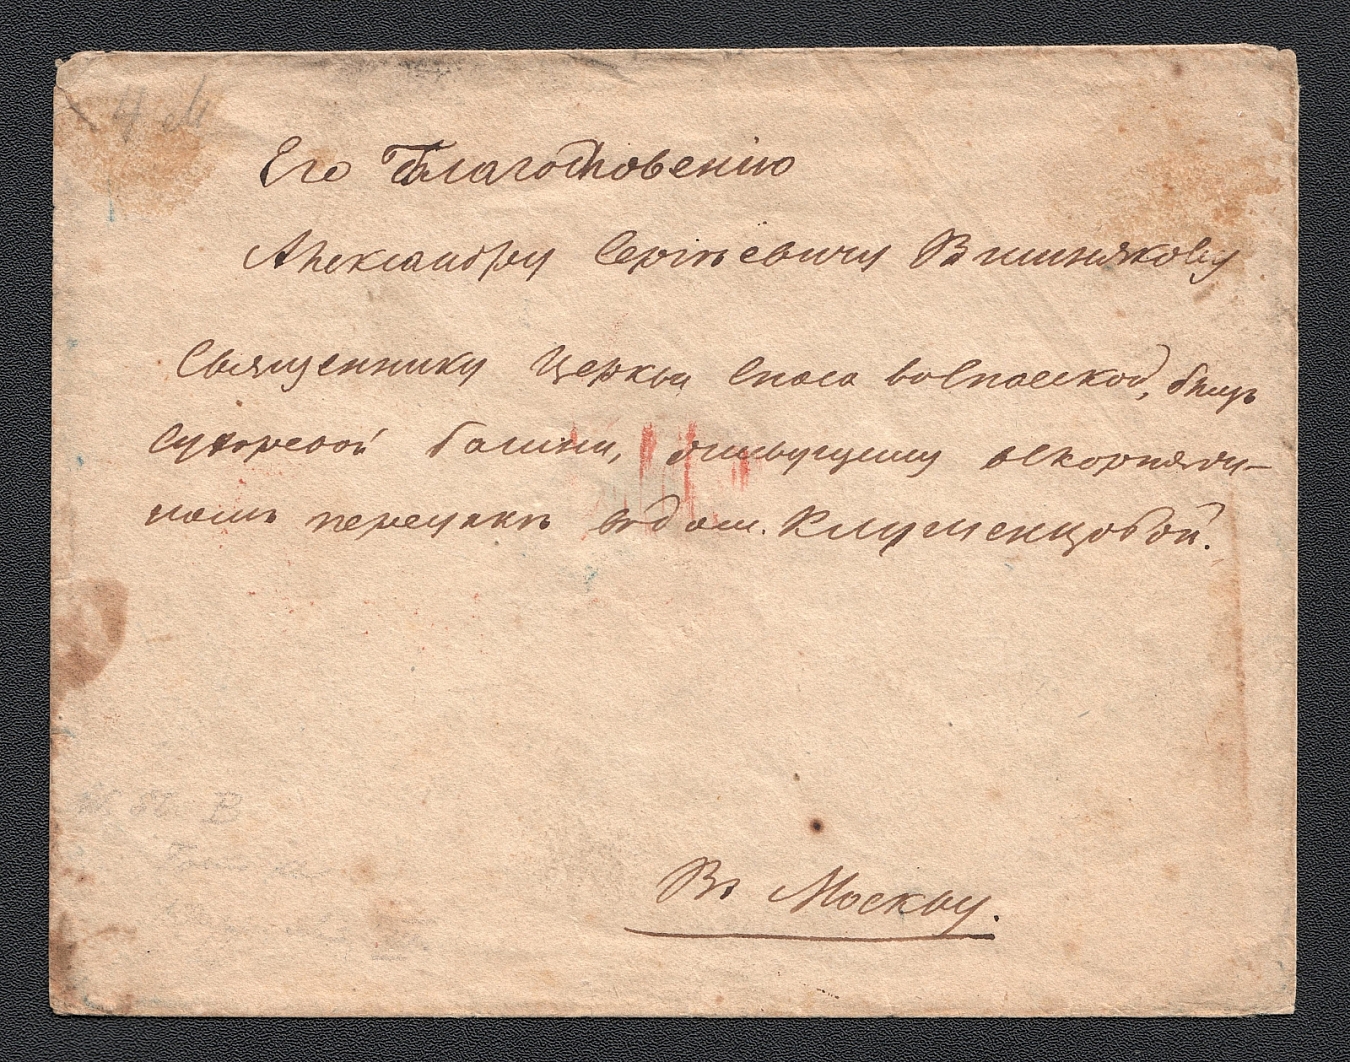 Его Благословенію
Александру Сергѣевичу Вишнякову
Священнику Церкви Спаса во Спасской, близъ
Сухаревой башни, живущему в Скорняжи-
номъ переулкѣ въ дом.
Въ Москву.